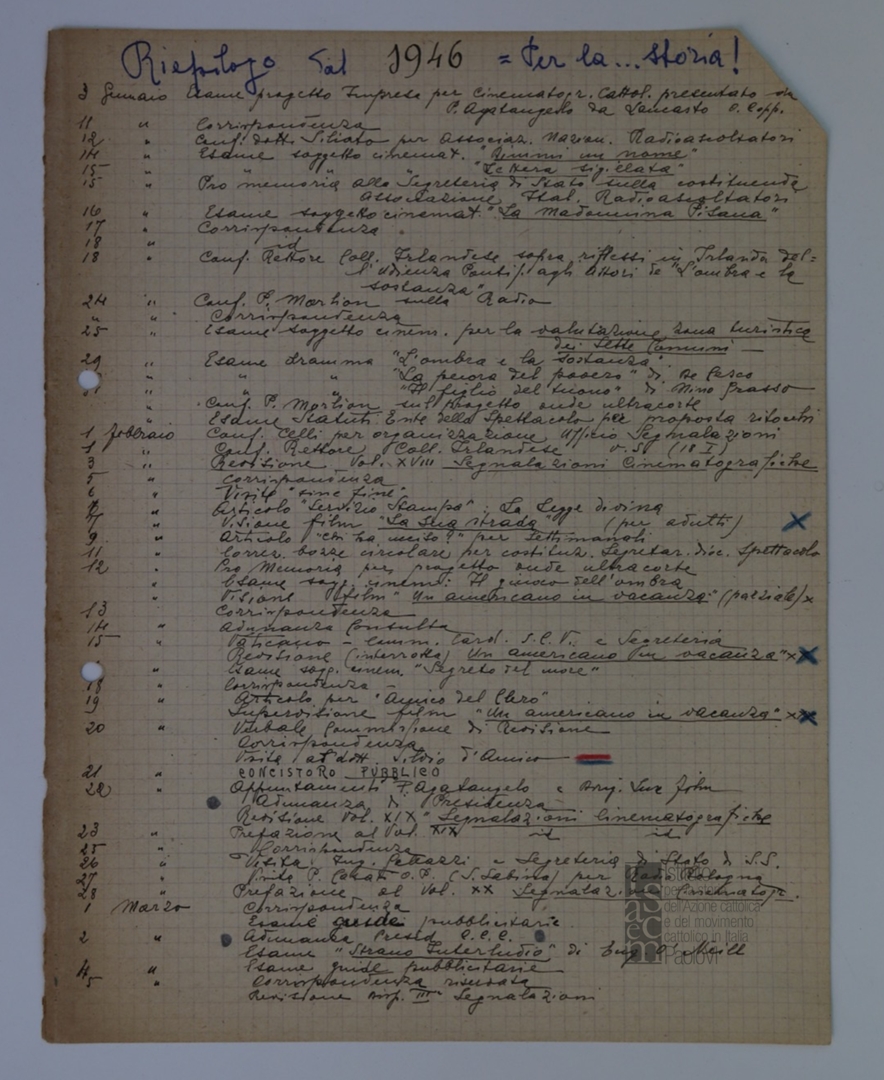 Riepilogo dal 1946 = Per la... storia!
3 Gennaio Esame progetto Impresa per Cinematogr. Cattol. presentato da
P. Agatangelo da O. Capp.
11 " Corrispondenza
12 " Conf. dott. per Associaz. Nazion. Radioascoltatori
14 " Esame soggetto cinemat. "Dimmi un nome"
15 " "Lettera sigillata"
15 " Pro "memoria" alla Segreteria di Stato sulla costituenda
Associazione Ital. Radioascoltatori
16 " Esame soggetto cinemat. "La Madonnina Pisana"
17 " Corrispondenza
18 " id
18 " Conf. Rettore Coll. Irlandese sopra riflessi in Irlanda del=
l'udienza Pontif. agli Attori de "L'ombra e la
sostanza"
24 " Conf. P. Morlion sulla Radio
" " Corrispondenza
25 " Esame soggetto cinem. per la valutazione zona turistica
dei Sette Comuni
29 " Esame dramma "L'ombra e la sostanza"
" " " "La pecora del povero" di
" " "Il figlio del tuono" di Nino Grasso
" Conf. P. Morlion sul progetto onde ultracorte
" Esame Statuti Ente dello Spettacolo per proposta ritocchi
1 Febbraio Conf. Celli per organizzazione Ufficio Segnalazioni
1 " Conf. Rettore Coll. Irlandese v. S. (18 I)
3 " Revisione Vol. XVIII Segnalazioni Cinematografiche
5 " Corrispondenza
6 " Visita "sine fine"
" Articolo "Servizio Stampa": La Legge divina
7 " Visione film "La sua strada" (per adulti) X
9 " Articolo "Chi ha ucciso?" per Settimanali
11 " Correz. bozze circolare per costituz. Segretar. dioc. Spettacolo
12 " Pro Memoria per progetto onde ultracorte
" Esame sogg. cinem: Il giuoco dell'ombra
" Visione film "Un americano in vacanza" (parziale) x
13 " Corrispondenza
14 " Adunanza Consulta
15 " Vaticano - Comm. Card. e Segreteria
" Revisione (interrotta) Un americano in vacanza" x X
" Esame sogg. cinem. "Segreto del mare"
18 " Corrispondenza
19 " Articolo per "Amico del Clero"
" Supervisione film "Un americano in vacanza" x X
20 " Verbale Commissione di Revisione
Corrispondenza
Visita al dott. Silvio d'Amico
21 " CONCISTORO PUBBLICO
22 " Appuntamenti P. Agatangelo e
" Adunanza di Presidenza
Revisione Vol. XIX "Segnalazioni Cinematografiche
23 " Prefazione al Vol. XIX id id
25 " Corrispondenza
26 " Visita: Ing. e Segreteria di Stato di S.S.
27 " Visita P. O.P. (S. Sabina) per Radio Bologna
28 " Prefazione al Vol. XX Segnalaz. Cinematogr.
1 Marzo Corrispondenza
Esame guide pubblicitarie
2 " Adunanza Presid. C.C.C.
Esame "Strano Interludio" di Eug. O'Neill
4 " Esame guide pubblicitarie
5 " Corrispondenza riservata
Revisione III Segnalazioni
isacem
Istituto
per la storia
dell'Azione cattolica
e del movimento
cattolico in Italia
Paolo VI